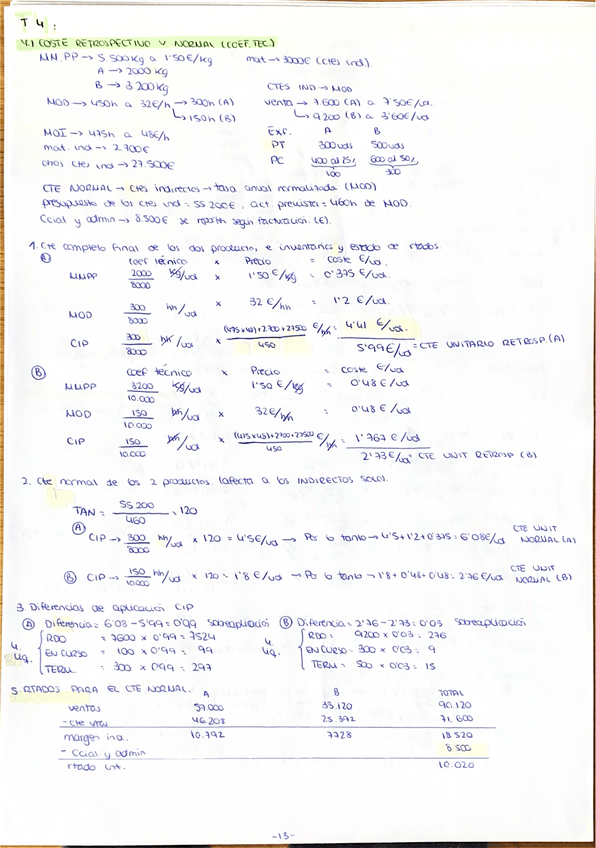 T 4 :
4.1 COSTE RETROSPECTIVO Y NORMAL (COEF. TEC.)
MM.PP → 5.500kg a 1'50€/kg mat → 3000€ (ctes ind)
A → 2000 kg
B → 3.200kg CTES IND → MOD
MOD → 450h a 32€/h → 300h (A) venta → 7.600 (A) a 7'50€/ud.
↳ 150h (B) ↳ 9200 (B) a 3'60€/ud
MOI → 475h a 48€/h Exf. A B
mat. ind → 2.700€ PT 300uds 500uds
otros ctes ind → 27.500€ PC 400 al 25% 600 al 50%
100 300
CTE NORMAL → ctes indirectos → tasa anual normalizada (MOD)
presupuesto de los ctes ind = 55.200€, act. prevista = 460h de MOD.
Ccial y admin → 8.500€ se reparten según facturación. (€).
1. Cte completo final de los dos producto, e inventarios y estado de rtados.
A coef técnico x Precio = coste €/ud.
MMPP 2000/8000 kg/ud x 1'50 €/kg = 0'375 €/ud.
MOD 300/8000 hh/ud x 32 €/hh = 1'2 €/ud.
CIP 300/8000 hh/ud x (475x48)+2700+27500/450 €/hh = 4'41 €/ud.
5'99€/ud = CTE UNITARIO RETROSP. (A)
B coef técnico x Precio = coste €/ud
MMPP 3200/10.000 kg/ud x 1'50 €/kg = 0'48 €/ud
MOD 150/10.000 hh/ud x 32€/hh = 0'48 €/ud
CIP 150/10.000 hh/ud x (475x48)+2700+27500/450 €/hh = 1'767 €/ud
2'73€/ud = CTE UNIT RETROSP (B)
2. Cte normal de los 2 productos. (afecta a los INDIRECTOS SOLO).
TAN = 55.200/460 = 120
A CIP → 300/8000 hh/ud x 120 = 4'5€/ud → Por lo tanto → 4'5+1'2+0'375 = 6'08€/ud CTE UNIT NORMAL (A)
B CIP → 150/10.000 hh/ud x 120 = 1'8 €/ud → Por lo tanto → 1'8+0'48+0'48 = 2'76€/ud CTE UNIT NORMAL (B)
3. Diferencias de aplicación CIP
A Diferencia = 6'08 - 5'99 = 0'99 Sobreaplicación B Diferencia = 2'76 - 2'73 = 0'03 Sobreaplicación
RDO = 7600 x 0'99 = 7524 RDO = 9200 x 0'03 = 276
4. Liq. EN CURSO = 100 x 0'99 = 99 4. Liq. EN CURSO = 300 x 0'03 = 9
TERM. = 300 x 0'99 = 297 TERM = 500 x 0'03 = 15
5. RTADOS PARA EL CTE NORMAL. A B TOTAL
ventas 57.000 33.120 90.120
- cte vtas 46.208 25.392 71.600
margen ind.. 10.792 7728 18.520
- Ccial y admin 8.500
rtado 10.020
-13-